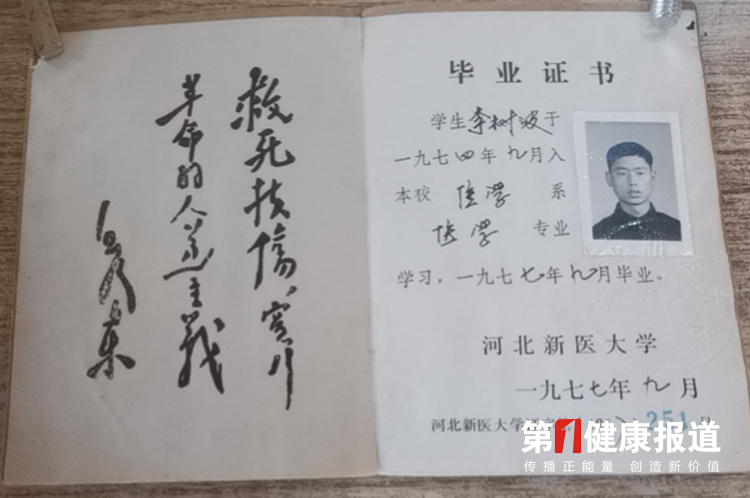 救死扶傷，实行
革命的人道主義
毛泽东
毕业证书
学生李树波于
一九七四年九月入
本校医学系
医学专业
学习，一九七七年九月毕业。
河北新医大学
一九七七年九月
河北新医大学 251号
第1健康报道
传播正能量 创造新价值